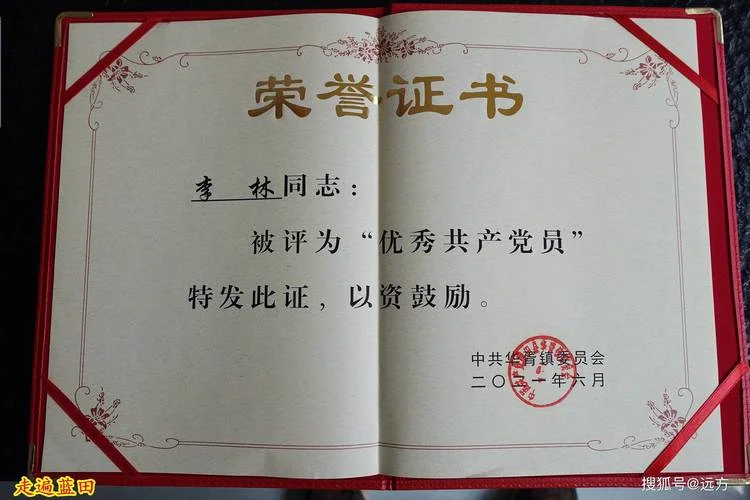 荣誉证书
李 林同志：
被评为“优秀共产党员”
特发此证，以资鼓励。
中共华胥镇委员会
二〇二一年六月
走遍蓝田
搜狐号@远方